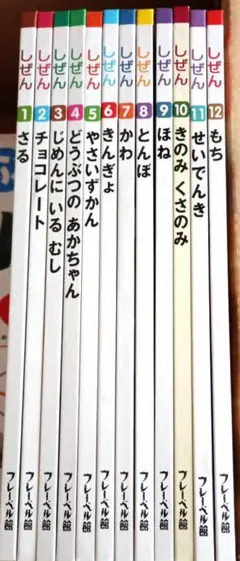 しぜん 1 さる フレーベル館
しぜん 2 チョコレート フレーベル館
しぜん 3 じめんに いる むし フレーベル館
しぜん 4 どうぶつの あかちゃん フレーベル館
しぜん 5 やさいずかん フレーベル館
しぜん 6 きんぎょ フレーベル館
しぜん 7 かわ フレーベル館
しぜん 8 とんぼ フレーベル館
しぜん 9 ほね フレーベル館
しぜん 10 きのみ くさのみ フレーベル館
しぜん 11 せいでんき フレーベル館
しぜん 12 もち フレーベル館